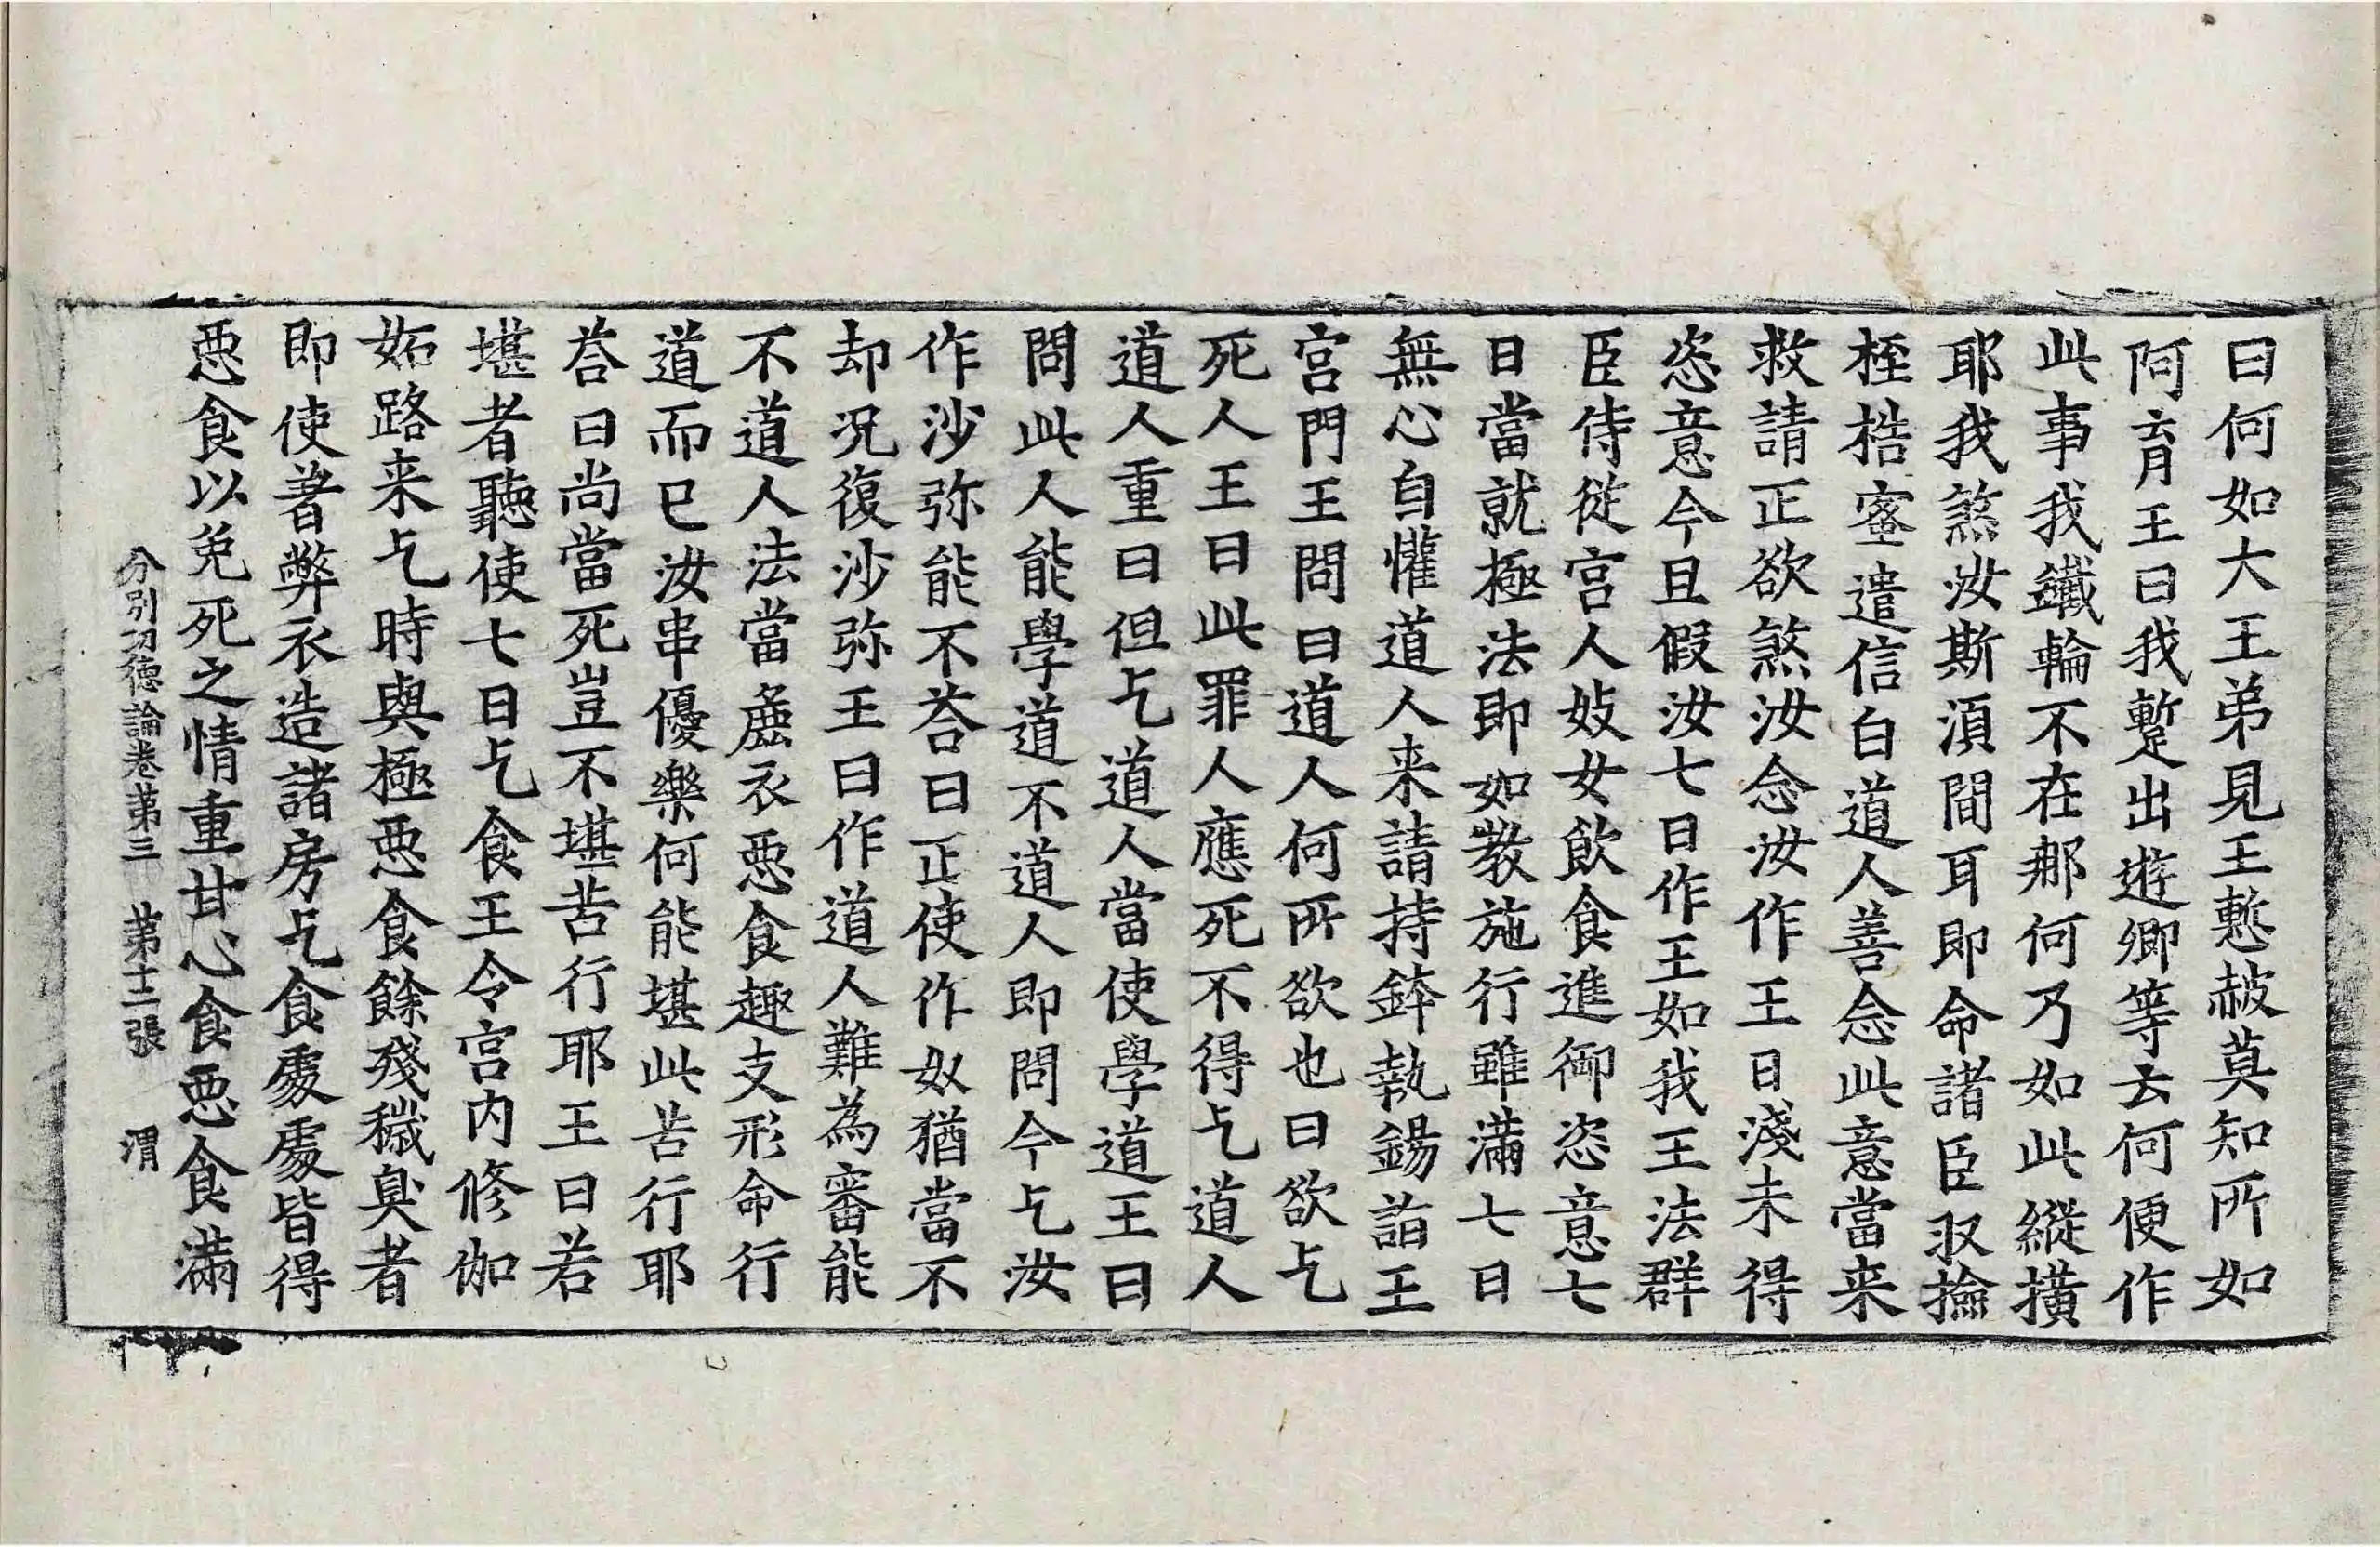 曰何如大王弟見王慙赧莫知所如
阿育王曰我蹔出遊卿等云何便作
此事我鐵輪不在那何乃如此縱撗
耶我煞汝斯湏間耳即命諸臣収撿
桎梏密遣信白道人善念此意當来
救請正欲煞汝念汝作王日淺未得
恣意今且假汝七日作王如我王法群
臣侍従宫人妓女飲食進御恣意七
日當就極法即如教施行雖滿七日
無心自懽道人来請持鉢執錫詣王
宫門王問曰道人何所欲也曰欲乞
死人王曰此罪人應死不得乞道人
道人重曰但乞道人當使學道王曰
問此人能學道不道人即問今乞汝
作沙弥能不荅曰正使作奴猶當不
却况復沙弥王曰作道人難為審能
不道人法當麁衣惡食趣支形命行
道而已汝串優樂何能堪此苦行耶
荅曰尚當死豈不堪苦行耶王曰若
堪者聽使七日乞食王令宫内修伽
妬路来乞時與極惡食餘殘穢臭者
即使著弊衣造諸房乞食處處皆得
惡食以免死之情重甘心食惡食滿
分別功德論卷第三　第十二張　渭